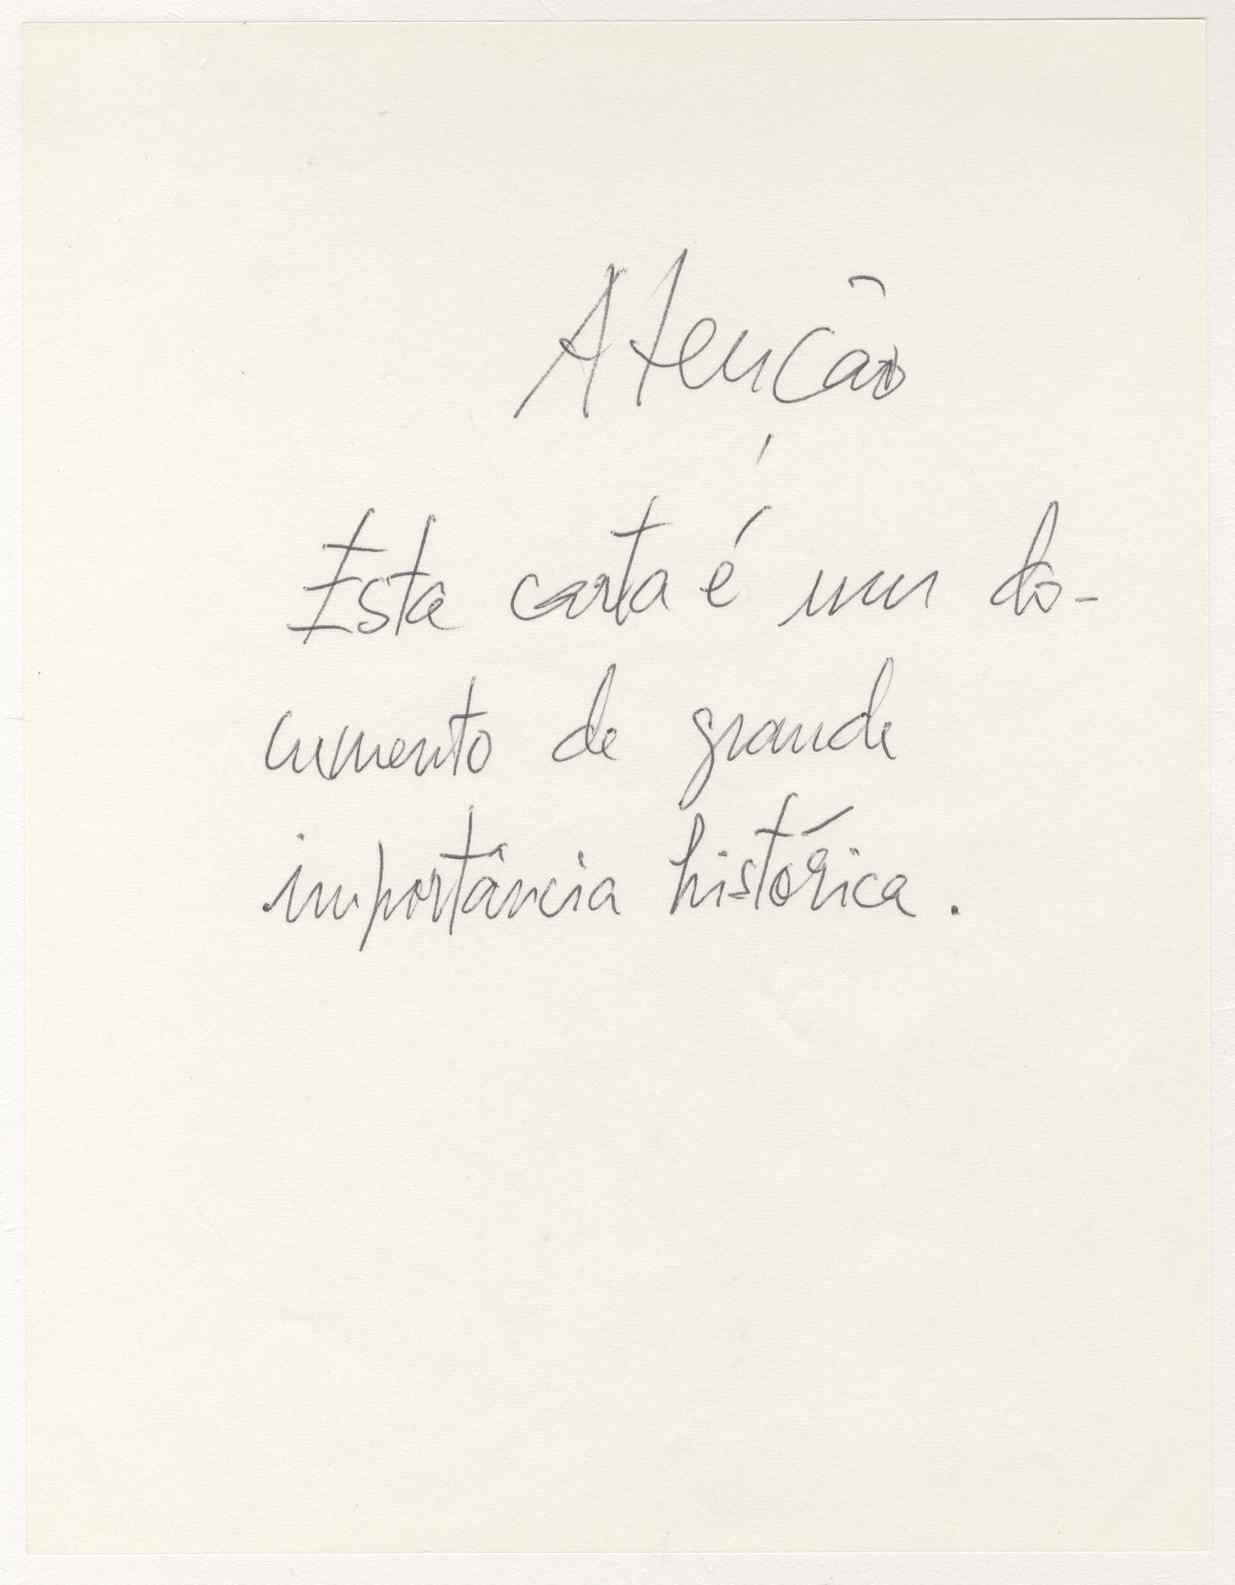 Atenção
Esta carta é um do-
cumento de grande
importância histórica.